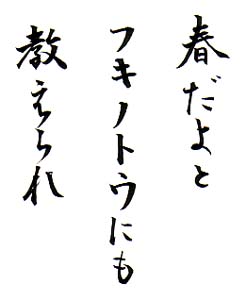 春だよと
フキノトウにも
教えられ